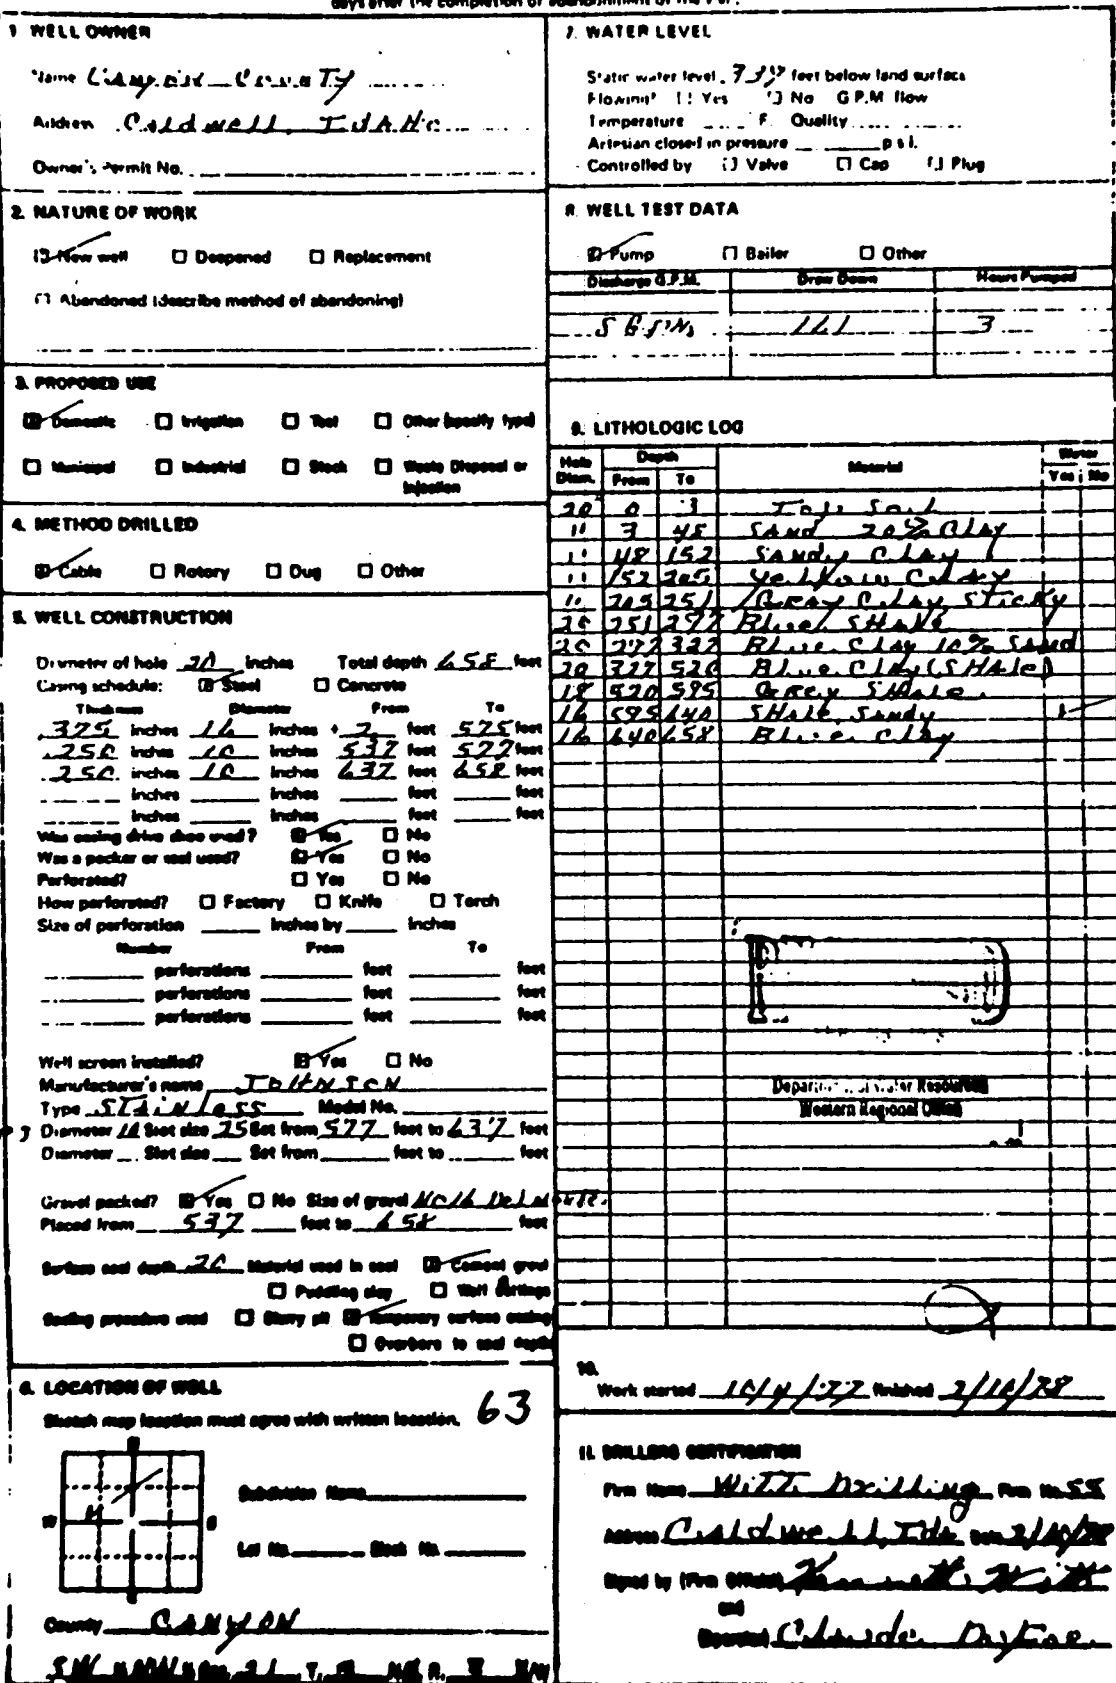 days after the completion or abandonment of the
1. WELL OWNER
Name Canyon County
Address Caldwell, IdAHo
Owner's Permit No.
2. NATURE OF WORK
New well Deepened Replacement
Abandoned (describe method of abandoning)
3. PROPOSED USE
Domestic Irrigation Test Other (specify type)
Municipal Industrial Stock Waste Disposal or Injection
4. METHOD DRILLED
Cable Rotary Dug Other
5. WELL CONSTRUCTION
Diameter of hole 20 inches Total depth 658 feet
Casing schedule: Steel Concrete
Thickness Diameter From To
.375 inches 16 inches + 2 feet 575 feet
.250 inches 10 inches 537 feet 577 feet
.250 inches 10 inches 637 feet 658 feet
inches inches feet feet
inches inches feet feet
Was casing drive shoe used? Yes No
Was a packer or seal used? Yes No
Perforated? Yes No
How perforated? Factory Knife Torch
Size of perforation inches by inches
Number From To
perforations feet feet
perforations feet feet
perforations feet feet
Well screen installed? Yes No
Manufacturer's name JOHNSON
Type STainless Model No.
Diameter 10 Slot size 25 Set from 577 feet to 637 feet
Diameter Slot size Set from feet to feet
Gravel packed? Yes No Size of gravel
Placed from 537 feet to 658 feet
Surface seal depth 20 Material used in seal Cement grout
Puddling clay Well cuttings
Sealing procedure used Slurry pit Temporary surface casing
Overbore to seal depth
6. LOCATION OF WELL
Sketch map location must agree with written location. 63
N
W E
S
Subdivision Name
Lot No. Block No.
County CANYON
7. WATER LEVEL
Static water level feet below land surface
Flowing? Yes No G.P.M. flow
Temperature F. Quality
Artesian closed in pressure p.s.i.
Controlled by Valve Cap Plug
8. WELL TEST DATA
Pump Bailer Other
Discharge G.P.M. Draw Down Hours Pumped
161 3
9. LITHOLOGIC LOG
Hole Diam. Depth From To Material Water Yes No
20 0 3 Top Soil
" 3 48 SAnd 20% Clay
" 48 152 SAndy Clay
" 152 205 Yellow Clay
" 205 251 Gray Clay, Sticky
20 251 277 Blue SHale
20 277 327 Blue Clay 10% Sand
20 327 520 Blue Clay (SHale)
18 520 595 Grey SHale
16 595 640 SHale, Sandy
16 640 658 Blue Clay
Department of Water Resources
Western Regional Office
10.
Work started 10/4/77 finished 2/10/78
11. DRILLERS CERTIFICATION
Firm Name Witt Drilling Firm No. 55
Address Caldwell, Ida Date 2/10/78
Signed by (Firm Official) Kenneth Witt
and
(Operator) Claude